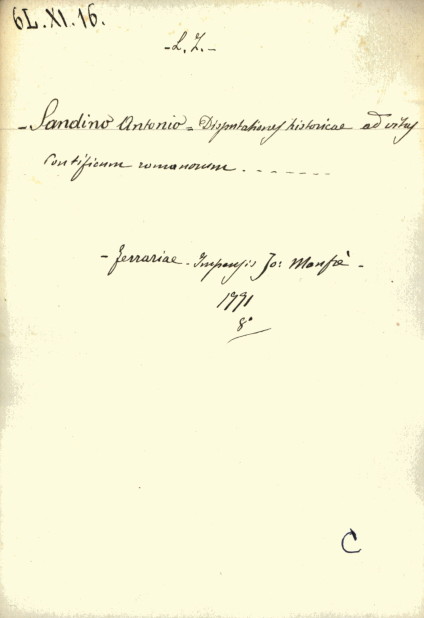 6L.XI.16.
- L. Z. -
- Sandino Antonio = Disputationes historicae ad vitas
Pontificum romanorum - - - - - - -
- Ferrariae - Impensis Jo: Manfrè -
1791
8°
C